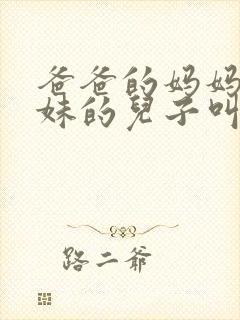 爸爸的妈妈
妹的兒子叫
路二爺